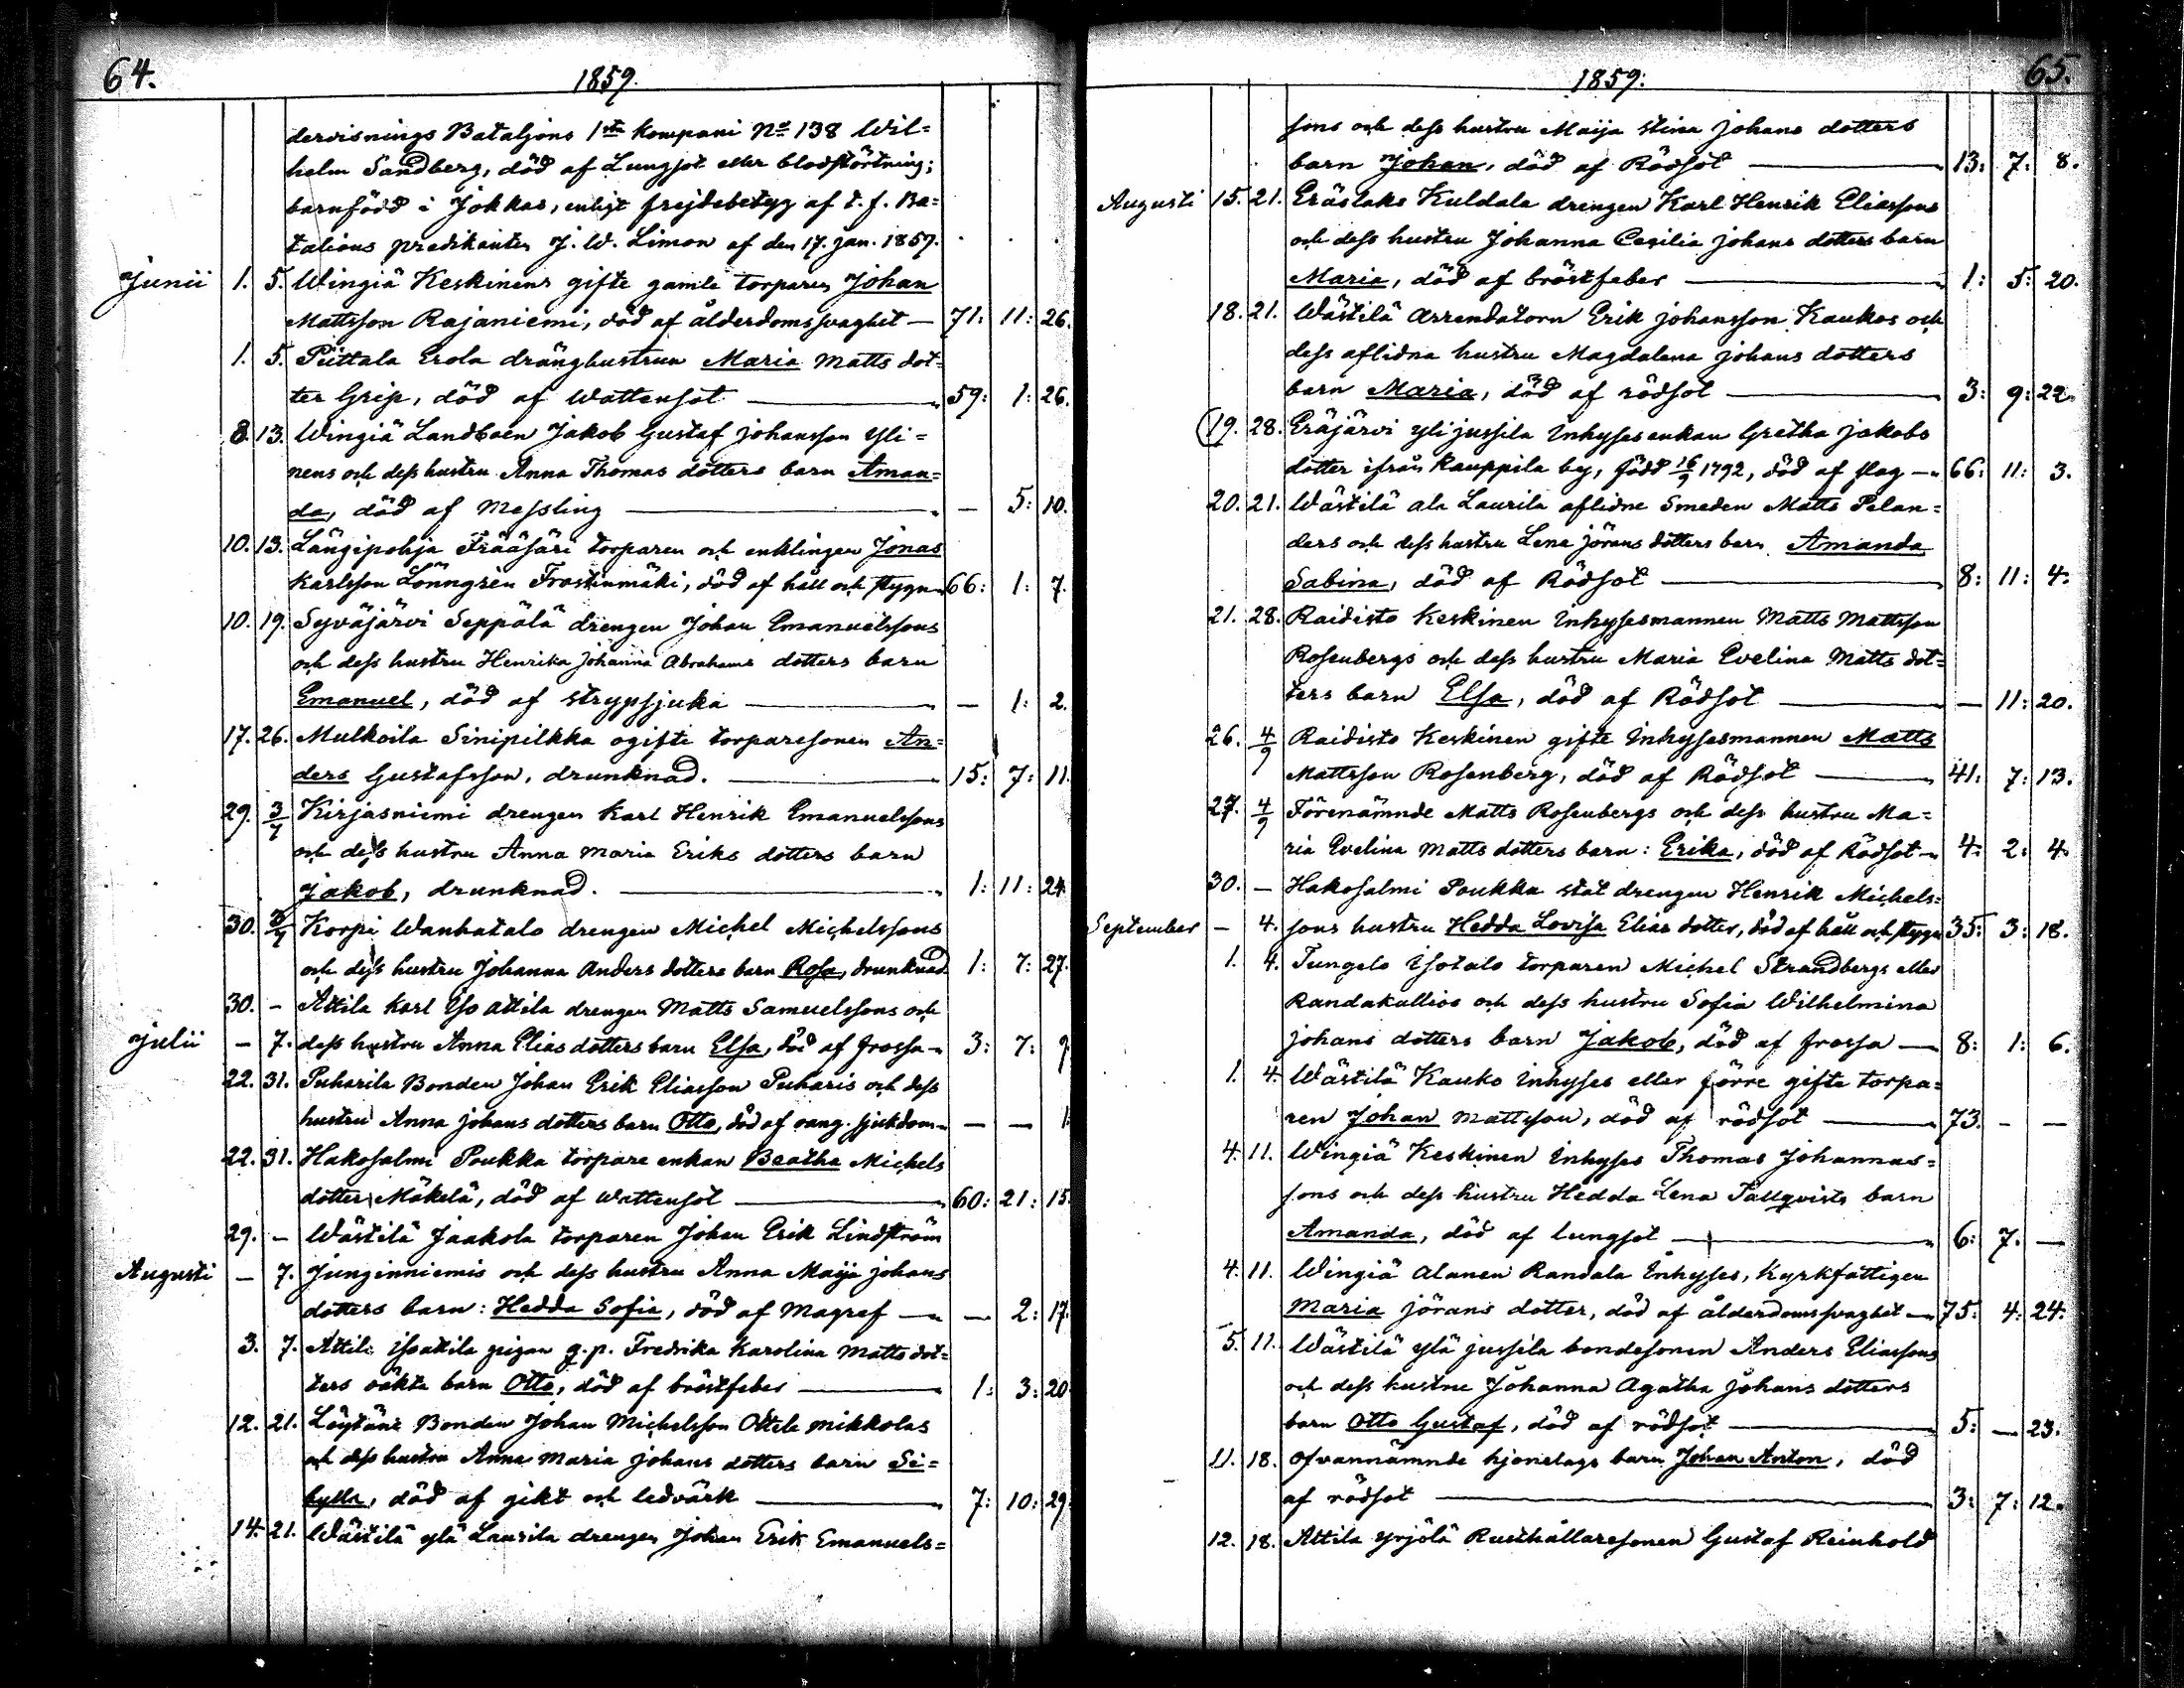 64.
1859.
dervisnings Bataljons 1sta Kompani No 138 Wil=
helm Sandberg, död af Lungsot eller blodstörtning;
barnfödd i Jokkas, enligt frejdebetyg af t. f. Ba=
taljons predikanten J. W. Limon af den 17. jan. 1857.
Junii 1. 5. Wingiä Keskinens gifte gamle torparen Johan
Mattsson Rajaniemi, död af ålderdomssvaghet — 71: 11: 26.
1. 5. Piittala Erola dränghustrun Maria Matts dot=
ter Grip, död af Wattensot — 59: 1: 26.
8. 13. Wingiä Landboen Jakob Gustaf Johansson Yli=
nens och dess hustru Anna Thomas dotters barn Aman=
da, död af Messling — — 5: 10.
10. 13. Längipohja Frääsäri torparen och enklingen Jonas
Karlsson Lönngrén Frostinmäki, död af håll och stygn 66: 1: 7.
10. 19. Syväjärvi Seppälä drengen Johan Emanuelssons
och dess hustru Henrika Johanna Abrahams dotters barn
Emanuel, död af strypsjuka — — 1: 2.
17. 26. Mulkoila Sinipilkka ogifte torparesonen An=
ders Gustafsson, drunknad. — 15: 7: 11.
29. 3/7 Kirjasniemi drengen Karl Henrik Emanuelssons
och dess hustru Anna Maria Eriks dotters barn
Jakob, drunknad. — 1: 11: 24.
30. 3/7 Korpi Wanhatalo drengen Michel Michelssons
och dess hustru Johanna Anders dotters barn Rosa, drunknad 1: 7: 27.
30. - Attila Karl Iso attila drengen Matts Samuelssons och
Julii - 7. dess hustru Anna Elias dotters barn Elsa, död af frossa 3: 7: 9.
22. 31. Puharila Bonden Johan Erik Eliasson Puharis och dess
hustru Anna Johans dotters barn Otto, död af oang. sjukdom — — 1.
22. 31. Hakosalmi Poukka torpare enkan Beatha Michels
dotter Mäkelä, död af Wattensot — 60: 21: 15.
29. - Wästilä Jaakola torparen Johan Erik Lindström
Augusti - 7. Junginniemis och dess hustru Anna Maija Johans
dotters barn: Hedda Sofia, död af Magref — — 2: 17.
3. 7. Attila isoatila pigan q.p. Fredrika Karolina Matts dot=
ters oäkta barn Otto, död af bröstfeber — 1: 3: 20.
12. 21. Löytäne Bonden Johan Michelsson Ottela Mikkolas
och dess hustru Anna Maria Johans dotters barn Si=
bylla, död af gikt och ledvärk — 7: 10: 29.
14. 21. Wästilä ylä Laurila drengen Johan Erik Emanuels=
65.
1859.
sons och dess hustru Maija Stina Johans dotters
barn Johan, död af Rödsot — 13: 7: 8.
Augusti 15. 21. Eräslaks Kuldala drengen Karl Henrik Eliassons
och dess hustru Johanna Cecilia Johans dotters barn
Maria, död af bröstfeber — 1: 5: 20.
18. 21. Wästilä Arrendatorn Erik Johansson Kaukos och
dess aflidna hustru Magdalena Johans dotters
barn Maria, död af rödsot — 3: 9: 22.
19. 28. Eräjärvi yli jussila Inhysesenkan Gretha Jakobs
dotter ifrån Kauppila by, född 16/9 1792, död af slag — 66: 11: 3.
20. 21. Wästilä ala Laurila aflidne Smeden Matts Pelan=
ders och dess hustru Lena Jörans dotters barn Amanda
Sabina, död af Rödsot — 8: 11: 4.
21. 28. Raidisto Keskinen Inhysesmannen Matts Mattsson
Rosenbergs och dess hustru Maria Evelina Matts dot=
ters barn Elsa, död af Rödsot — — 11: 20.
26. 4/9 Raidisto Keskinen gifte Inhysesmannen Matts
Mattsson Rosenberg, död af Rödsot — 41: 7: 13.
27. 4/9 Förenämnde Matts Rosenbergs och dess hustru Ma=
ria Evelina Matts dotters barn: Erika, död af Rödsot 4: 2: 4.
30. - Hakosalmi Poukka stat drengen Henrik Michels=
September - 4. sons hustru Hedda Lovisa Elias dotter, död af håll och stygn 35: 3: 18.
1. 4. Tungelo Isotalo torparen Michel Strandbergs eller
Randakallios och dess hustru Sofia Wilhelmina
Johans dotters barn Jakob, död af frossa — 8: 1: 6.
1. 4. Wästilä Kauko Inhyses eller förre gifte torpa=
ren Johan Mattsson, död af rödsot — 73. - —
4. 11. Wingiä Keskinen Inhyses Thomas Johannes=
sons och dess hustru Hedda Lena Tallqvists barn
Amanda, död af lungsot — 6: 7. —
4. 11. Wingiä Alanen Randala Inhyses, Kyrkfattigen
Maria Jörans dotter, död af ålderdomssvaghet — 75: 4: 24.
5. 11. Wästilä ylä jussila bondesonen Anders Eliassons
och dess hustru Johanna Agatha Johans dotters
barn Otto Gustaf, död af rödsot — 5: — 23.
11. 18. Ofvannämnde hjonelags barn Johan Anton, död
af rödsot — 3: 7: 12.
12. 18. Attila Yrjölä Rusthållaresonen Gustaf Reinhold